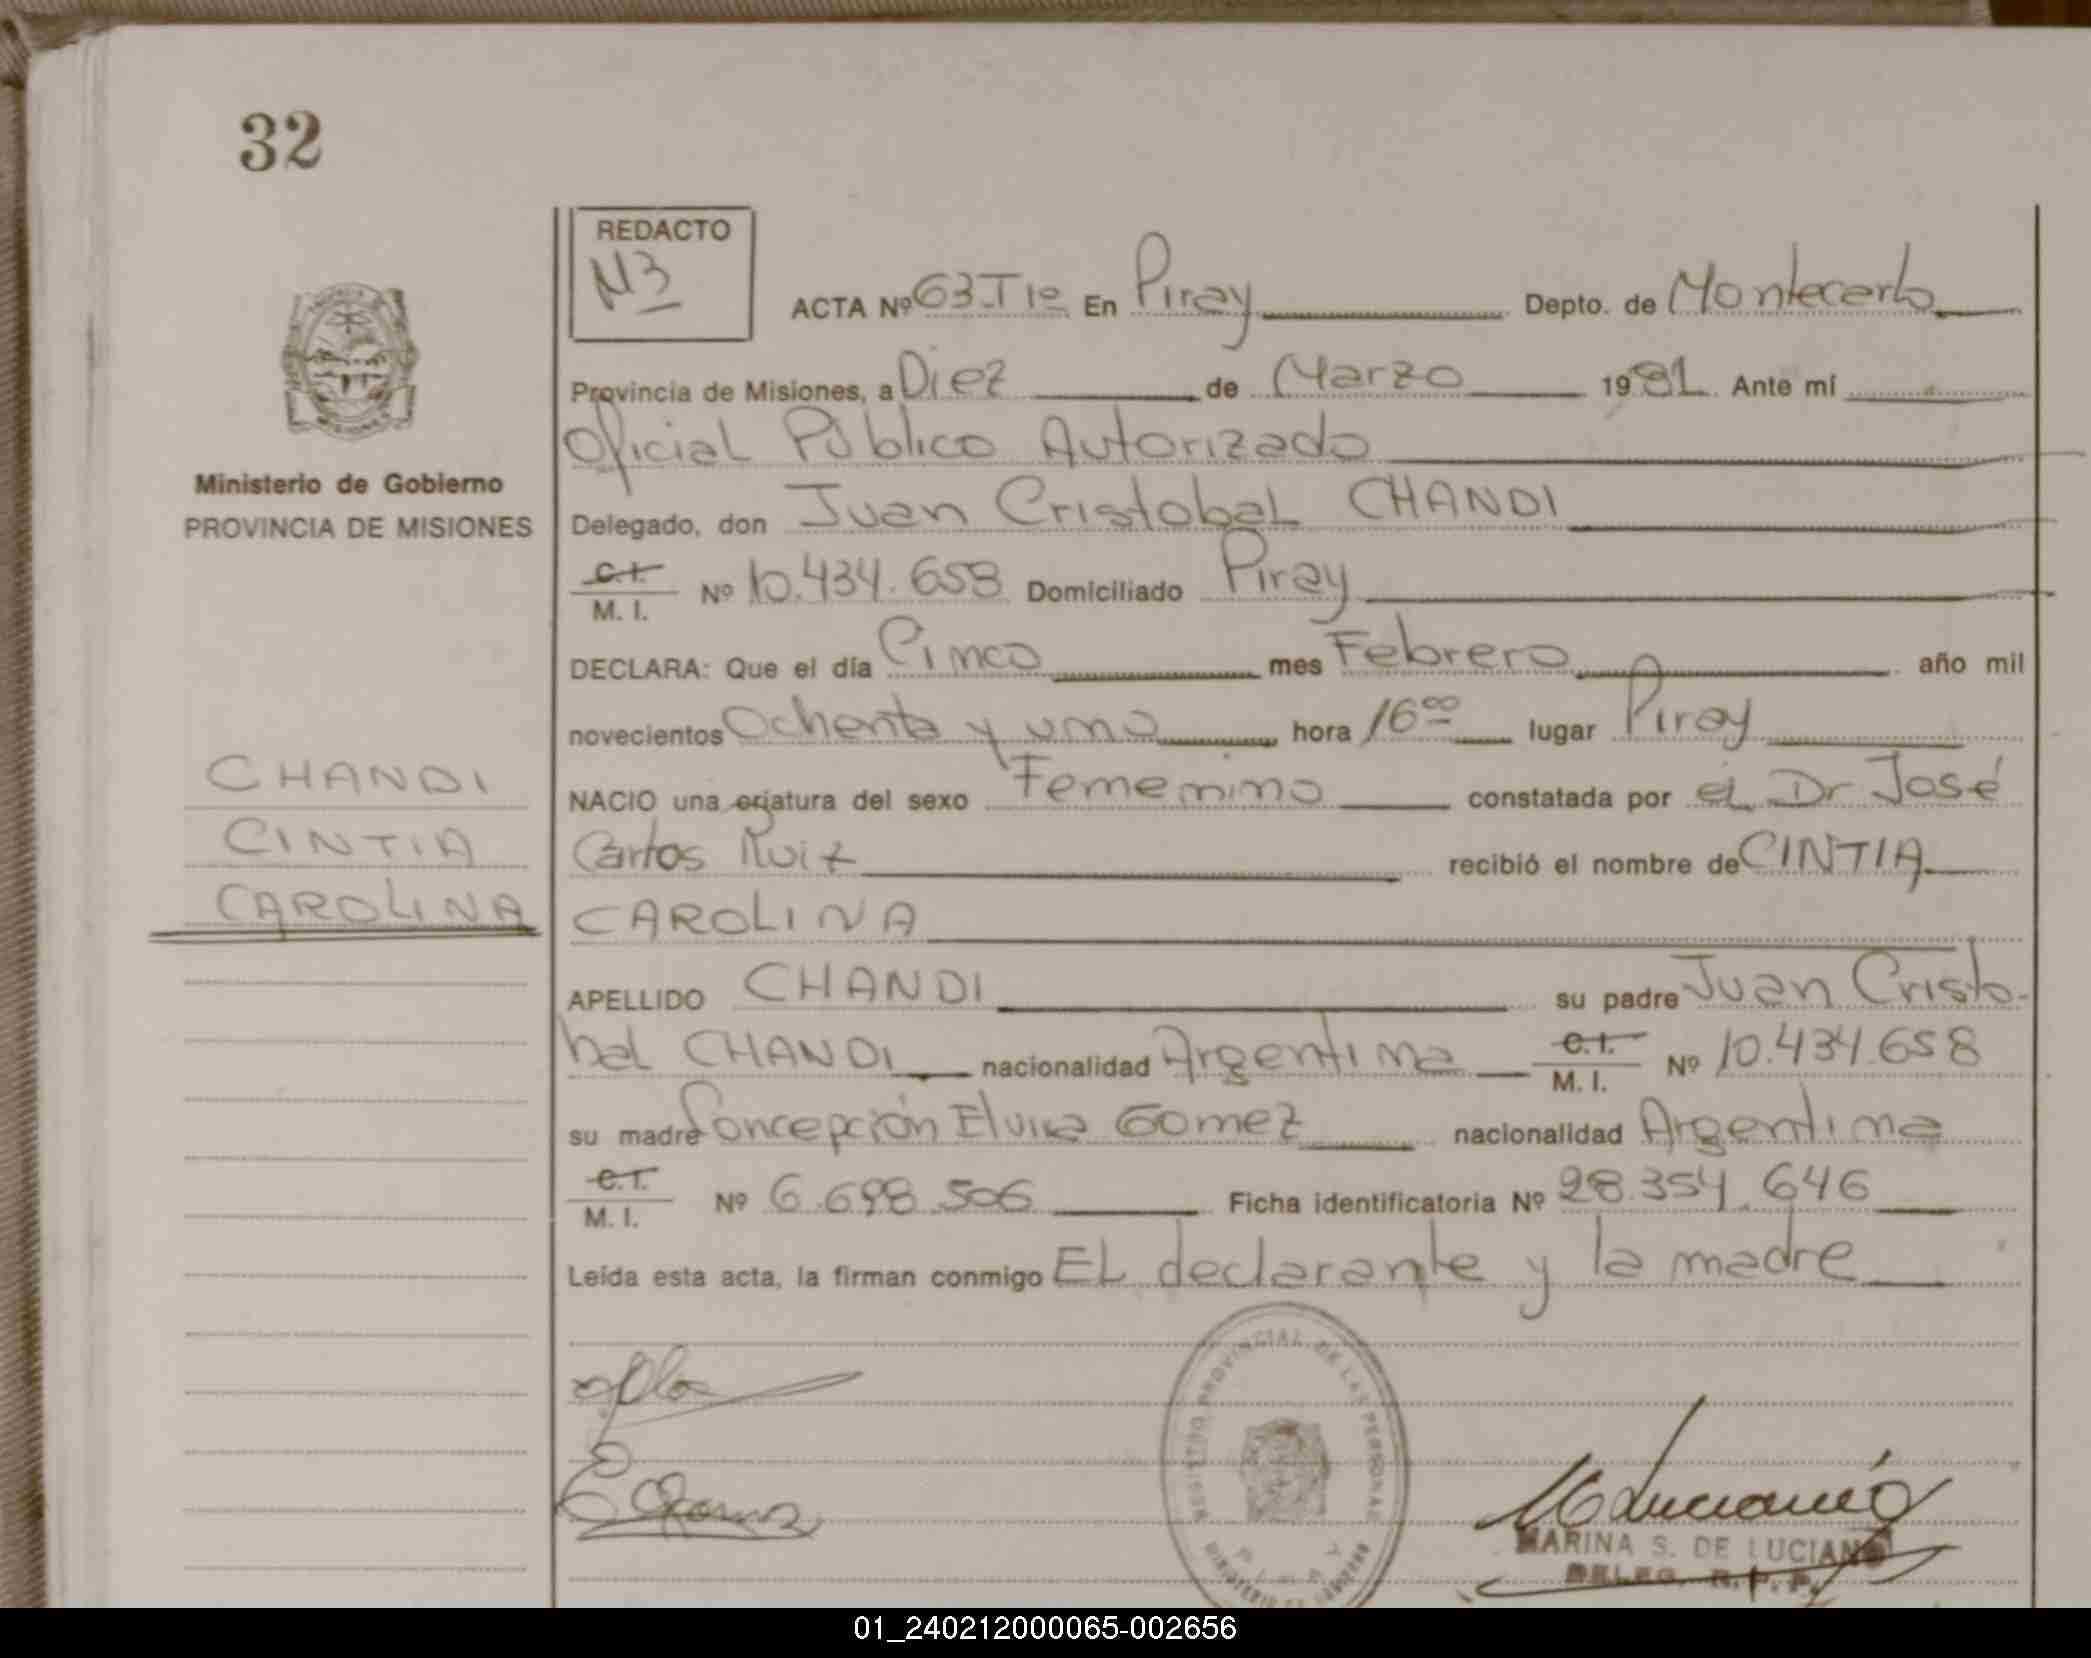 32
REDACTO
N3
ACTA Nº 63 T1º En Piray Depto. de Montecarlo
Provincia de Misiones, a Diez de Marzo 1981 Ante mí
Oficial Público Autorizado
Delegado, don Juan Cristobal CHANDI
C.I.
M. I. Nº 10.434.658 Domiciliado Piray
DECLARA: Que el día Cinco mes Febrero año mil
novecientos Ochenta y uno hora 16 00 lugar Piray
NACIO una criatura del sexo Femenino constatada por el Dr José
Carlos Ruiz recibió el nombre de CINTIA
CAROLINA
APELLIDO CHANDI su padre Juan Cristo-
bal CHANDI nacionalidad Argentina C.I. M. I. Nº 10.434.658
su madre Concepción Elvira Gomez nacionalidad Argentina
C.I.
M. I. Nº 6.698.506 Ficha identificatoria Nº 28.354.646
Leída esta acta, la firman conmigo EL declarante y la madre
Ministerio de Gobierno
PROVINCIA DE MISIONES
CHANDI
CINTIA
CAROLINA
REGISTRO PROVINCIAL DE LAS PERSONAS
PIRAY
MARINA S. DE LUCIANO
DELEG. R. P. P.
01_240212000065-002656